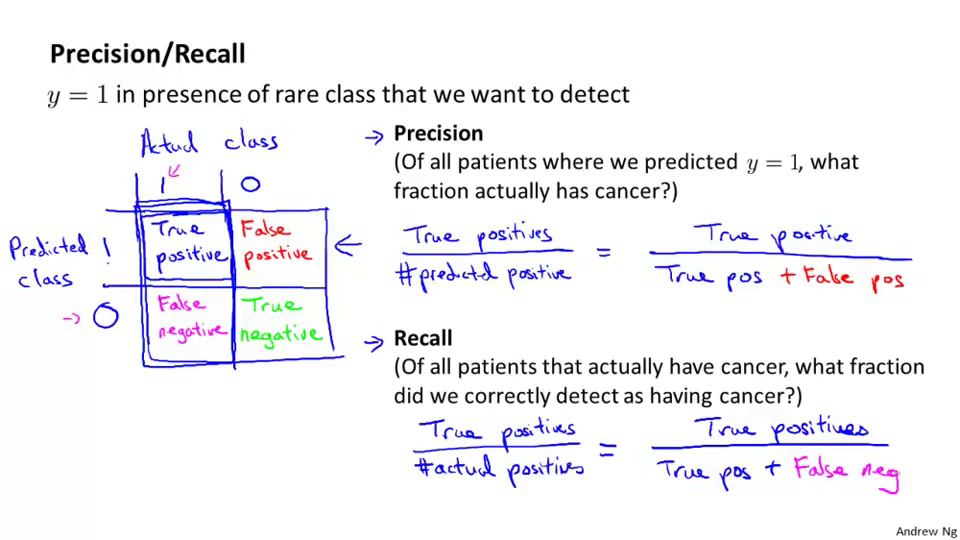 Precision/Recall
y = 1 in presence of rare class that we want to detect
Actual class
1 0
Predicted 1
class
0
True positive
False positive
False negative
True negative
→ Precision
(Of all patients where we predicted y = 1, what
fraction actually has cancer?)
True positives
#predicted positive
=
True positive
True pos + False pos
→ Recall
(Of all patients that actually have cancer, what fraction
did we correctly detect as having cancer?)
True positives
#actual positives
=
True positives
True pos + False neg
Andrew Ng